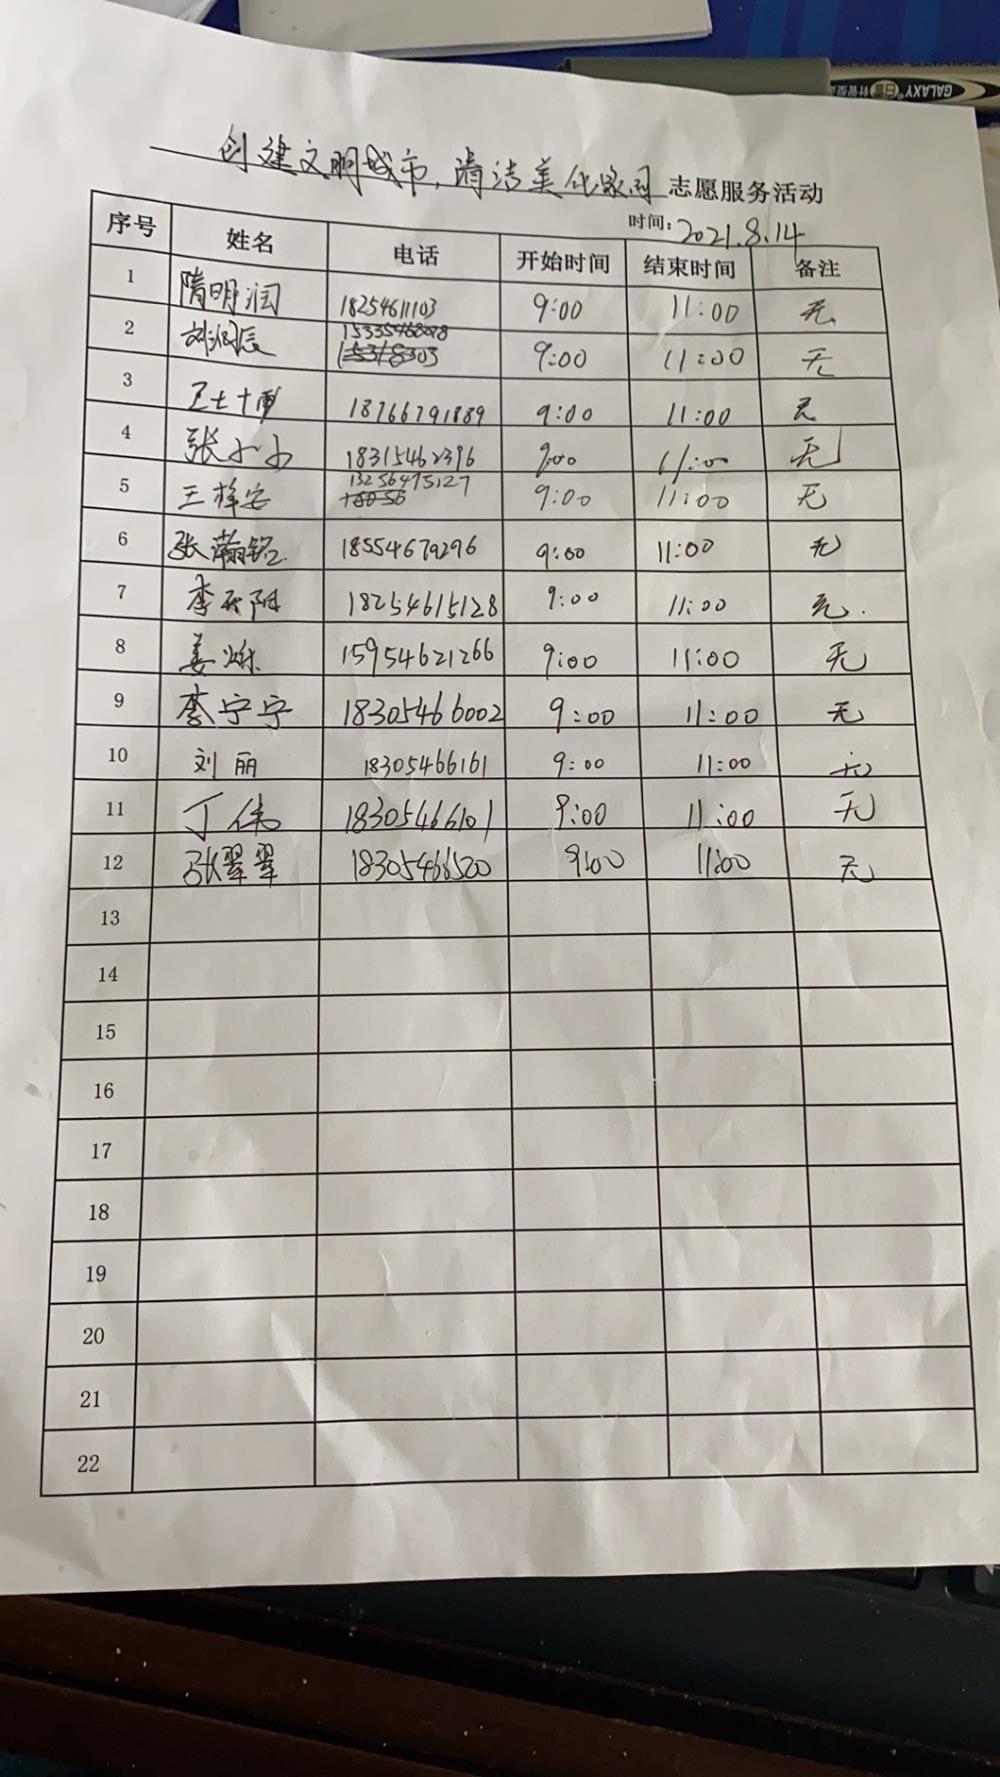 GALAXY
创建文明城市，清洁美化家园 志愿服务活动
时间：2021.8.14
序号 姓名 电话 开始时间 结束时间 备注
1 隋明润 18254611103 9:00 11:00 无
2 刘润辰 9:00 11:00 无
3 18766791889 9:00 11:00 无
4 张小小 18315462396 9:00 11:00 无
5 王梓安 13256475127 9:00 11:00 无
6 张瀚铭 18554679296 9:00 11:00 无
7 李天阳 18254615128 9:00 11:00 无.
8 姜烁 15954621266 9:00 11:00 无
9 李宁宁 18305466002 9:00 11:00 无
10 刘丽 18305466161 9:00 11:00 无
11 丁伟 18305466101 9:00 11:00 无
12 张翠翠 18305466500 9:00 11:00 无
13
14
15
16
17
18
19
20
21
22